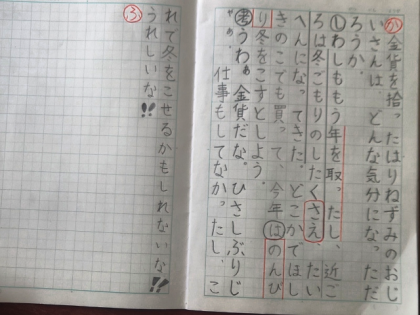 か 金貨を拾ったはりねずみのおじ
いさんは、どんな気分になっただ
ろうか。
し わしももう年を取ったし、近ご
ろは冬ごもりのしたくさえたい
へんになってきた。どこかでほし
きのこでも買って、今年はのんび
り冬をこすとしよう。
考 うわぁ金貨だな。ひさしぶりじ
ゃぁ。仕事もしてなかったし、こ
れで冬をこせるかもしれないな!!
うれしいな!!
ふ